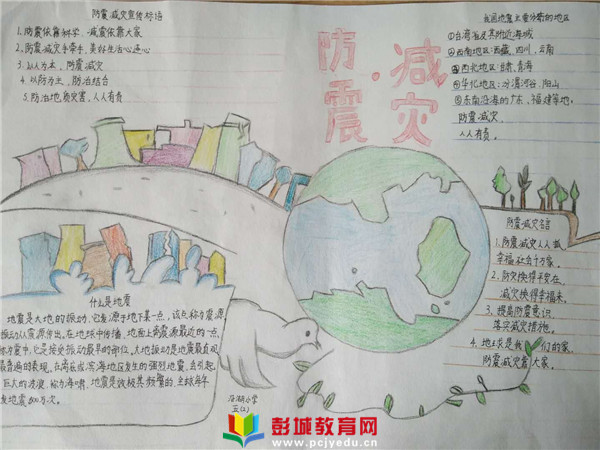 防震减灾宣传标语
1、防震依靠科学，减震依靠大家
2、防震减灾手牵手，美好生活心连心
3、以人为本，防震减灾
4、以防为主，防治结合
5、防治地质灾害，人人有责
防震
减灾
我国地震主要分布的地区
①台湾省及其附近海域
②西南地区：西藏、四川、云南
③西北地区：甘肃、青海
④华北地区：汾渭河谷、阴山
⑤东南沿海的广东、福建等地
防震减灾，
人人有责。
防震减灾名言
1、防震减灾人人
幸福社会千万家。
2、防灾换得平安在，
减灾换得幸福来。
3、提高防震意识，
落实减灾措施。
4、地球是我们的家，
防震减灾靠大家。
什么是地震
地震是大地的振动，它发源于地下某一点，该点称为震源
振动从震源传出，在地球中传播，地面上离震源最近的一点，
称为震中，它是接受振动最早的部位。大地振动是地震最直观、
最普遍的表现。在海底或滨海地区发生的强烈地震，会引起
巨大的波浪，称为海啸，地震是极其频繁的，全球每年
发地震500万次。
沿湖小学
五(2)
彭城教育网
www.pcjyedu.cn